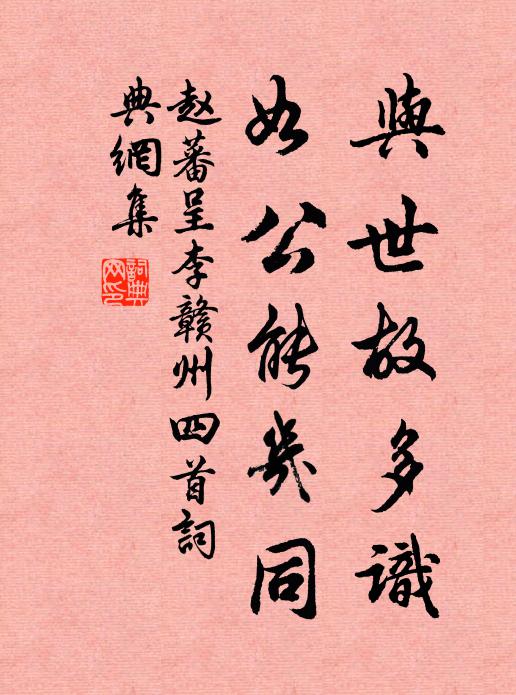 與世故多識
如公能幾同
赵蕃呈李赣州四首詞
典網集
詞典
网印